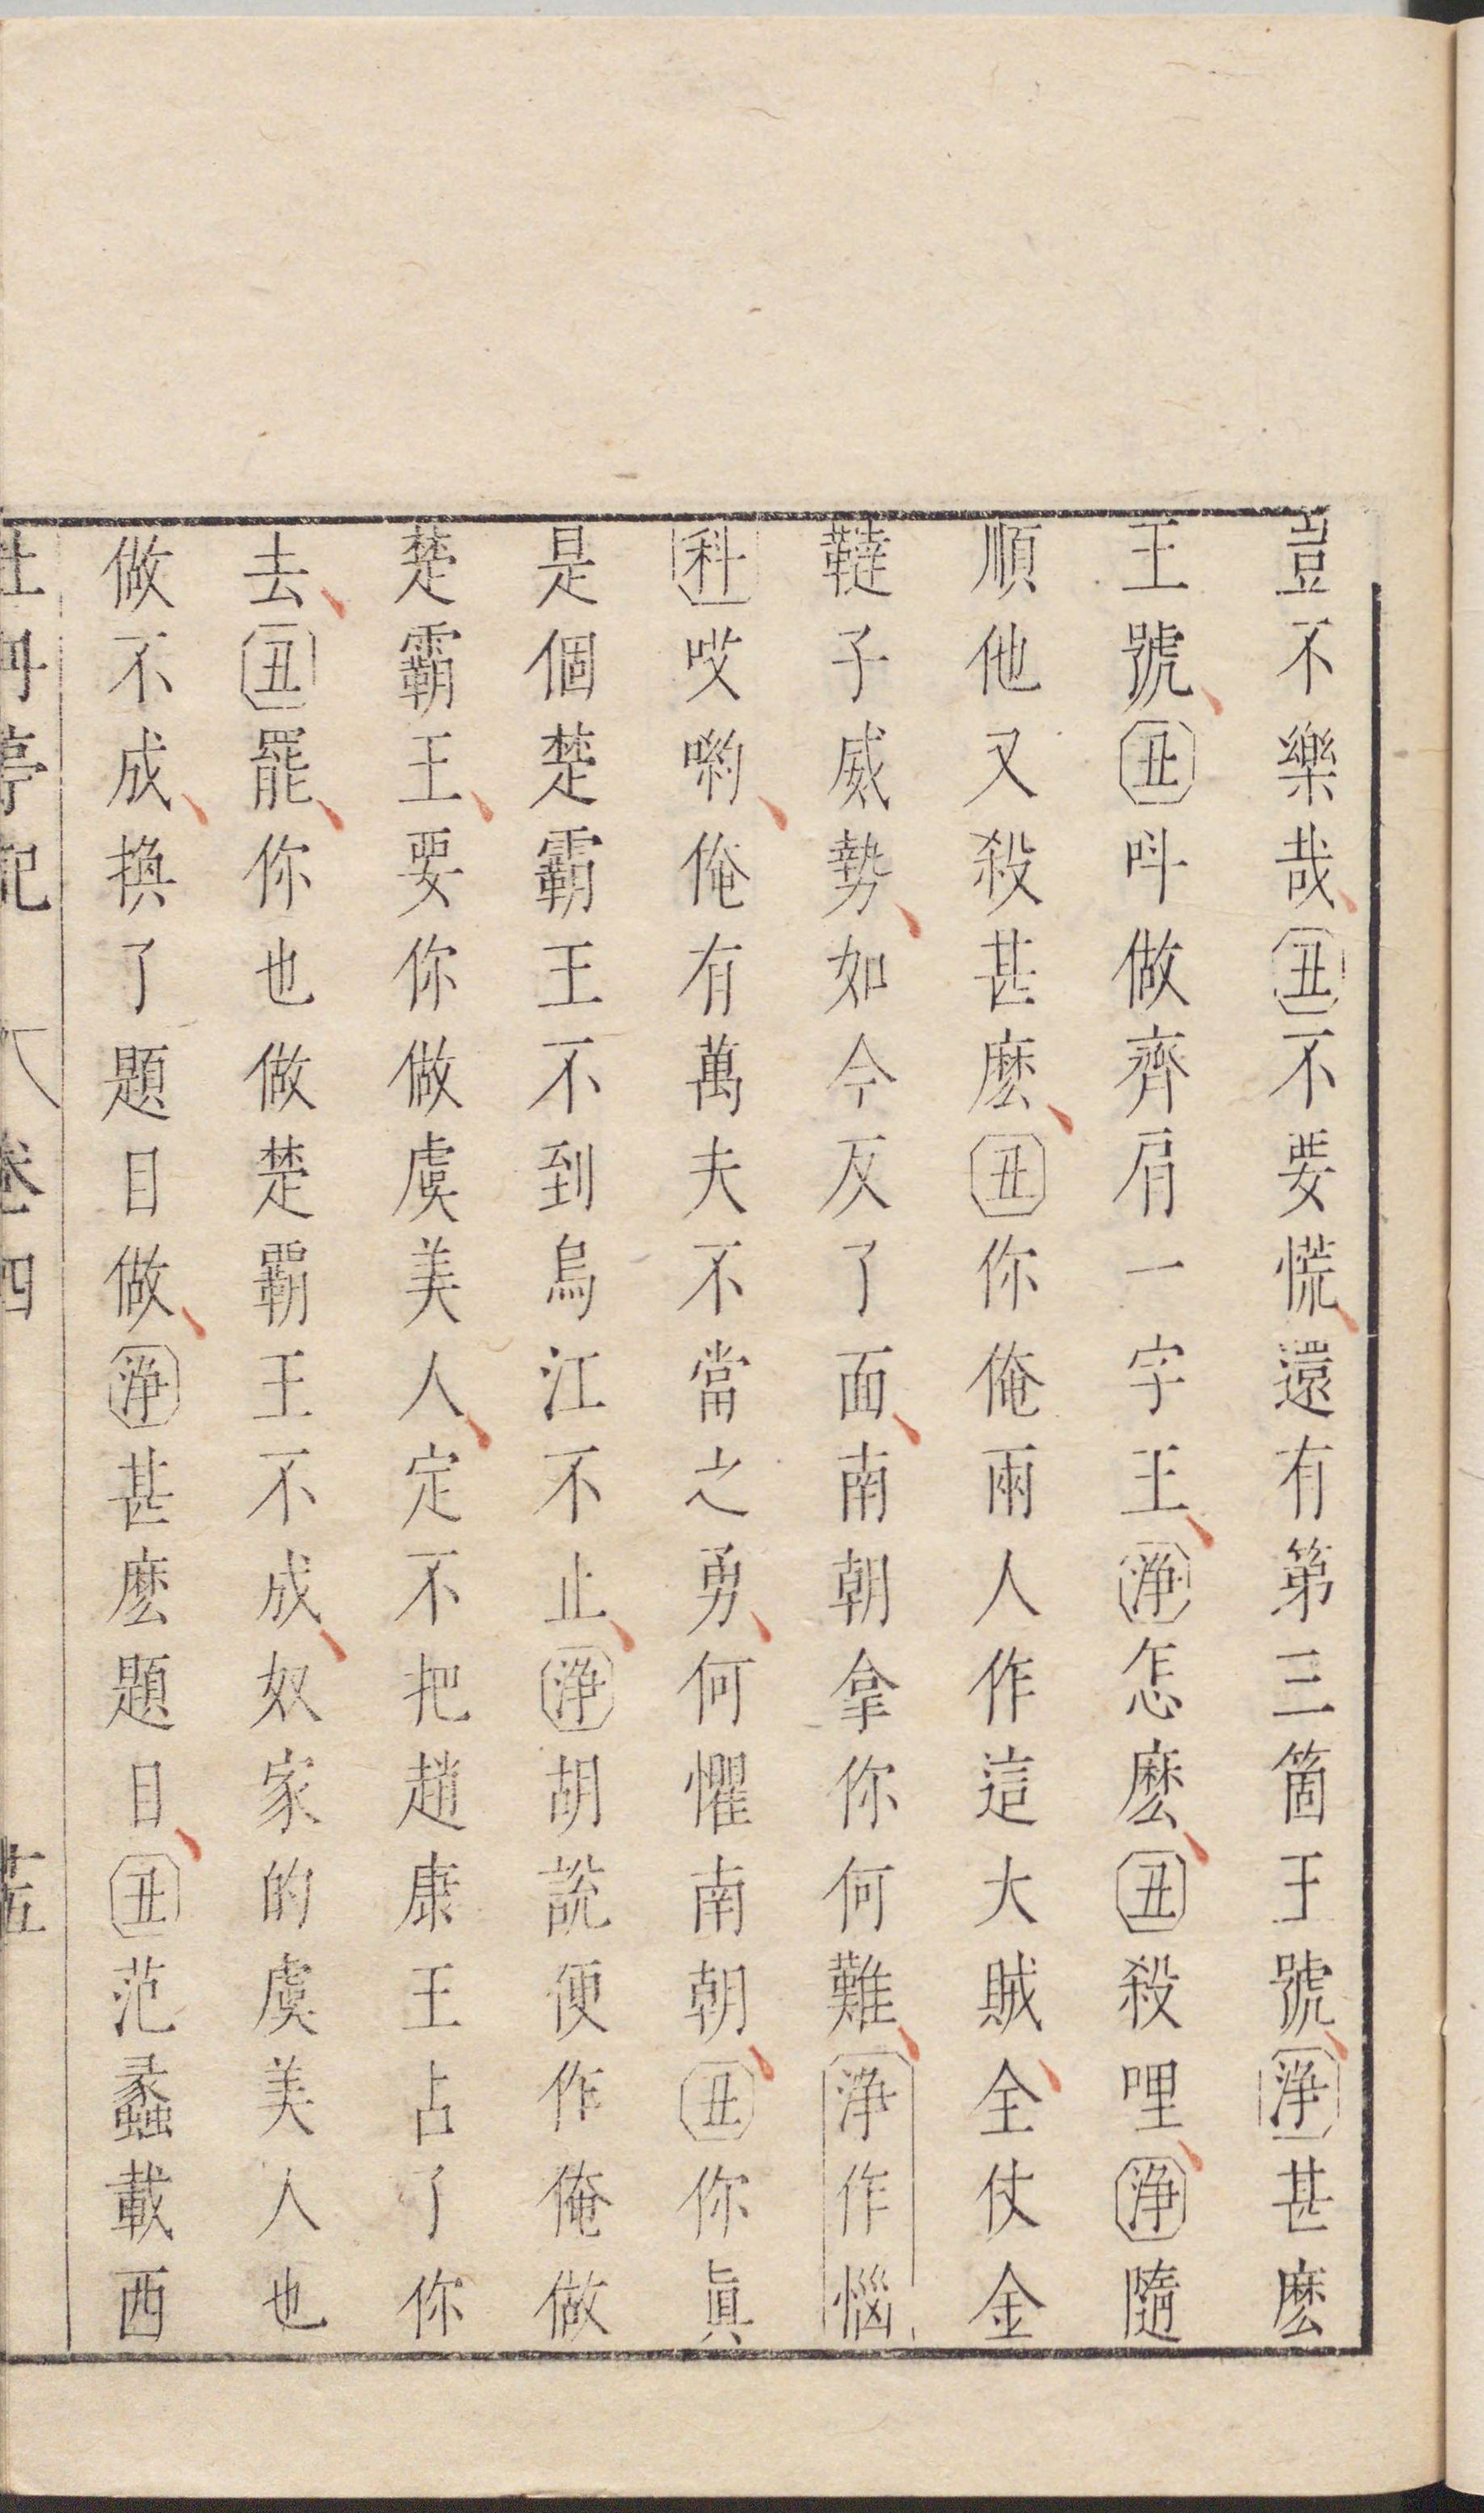 豈不樂哉丑不要慌還有第三箇王號淨甚麽
王號丑呌做齊肩一字王淨怎麽丑殺哩淨隨
順他又殺甚麽丑你俺兩人作這大賊全仗金
韃子威勢如今反了面南朝拿你何難淨作惱
科哎喲俺有萬夫不當之勇何懼南朝丑你眞
是個楚霸王不到烏江不止淨胡說便作俺做
楚霸王要你做虞美人定不把趙康王占了你
去丑罷你也做楚霸王不成奴家的虞美人也
做不成換了題目做淨甚麽題目丑范蠡載西
牡丹亭記 卷四